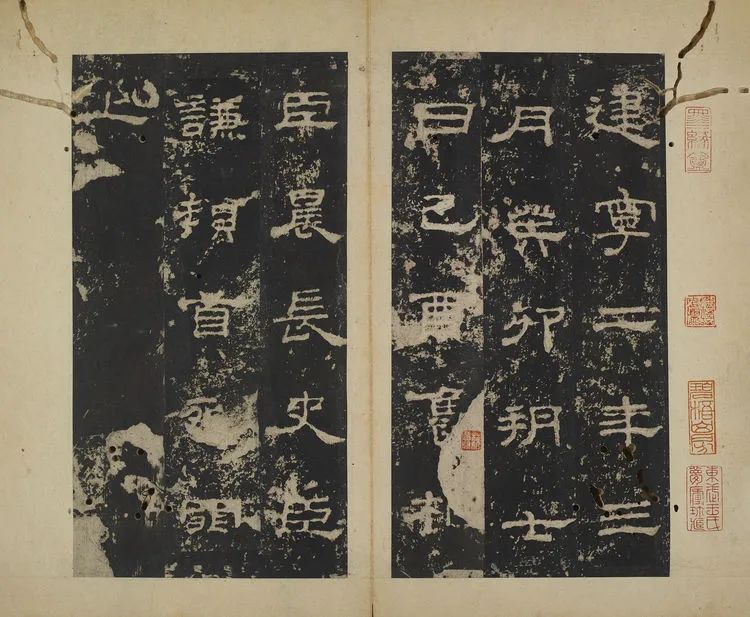 建寧二年三
月癸卯朔七
日己酉魯相
臣晨長史臣
謙頓首死罪